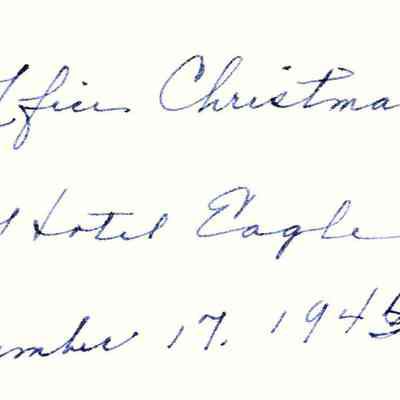 ffice Christma
Hotel Eagle
ember 17, 1945